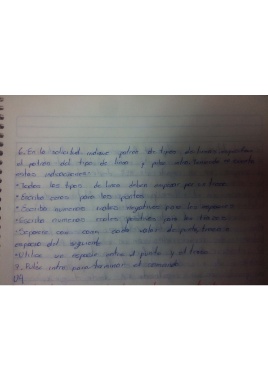 6. En la solicitud indique patrón de tipos de línea
el patrón del tipo de línea y pulse intro teniendo en cuenta
estas indicaciones:
• Todos los tipos de línea deben empezar por un trazo
• Escriba ceros para los puntos
• Escriba números reales negativos para los espacios
• Escriba números reales positivos para los trazos
• Separe con coma cada valor de punto, trazo o
espacio del siguiente
• Utilice un espacio entre el punto y el trazo
7. Pulse intro para terminar el comando